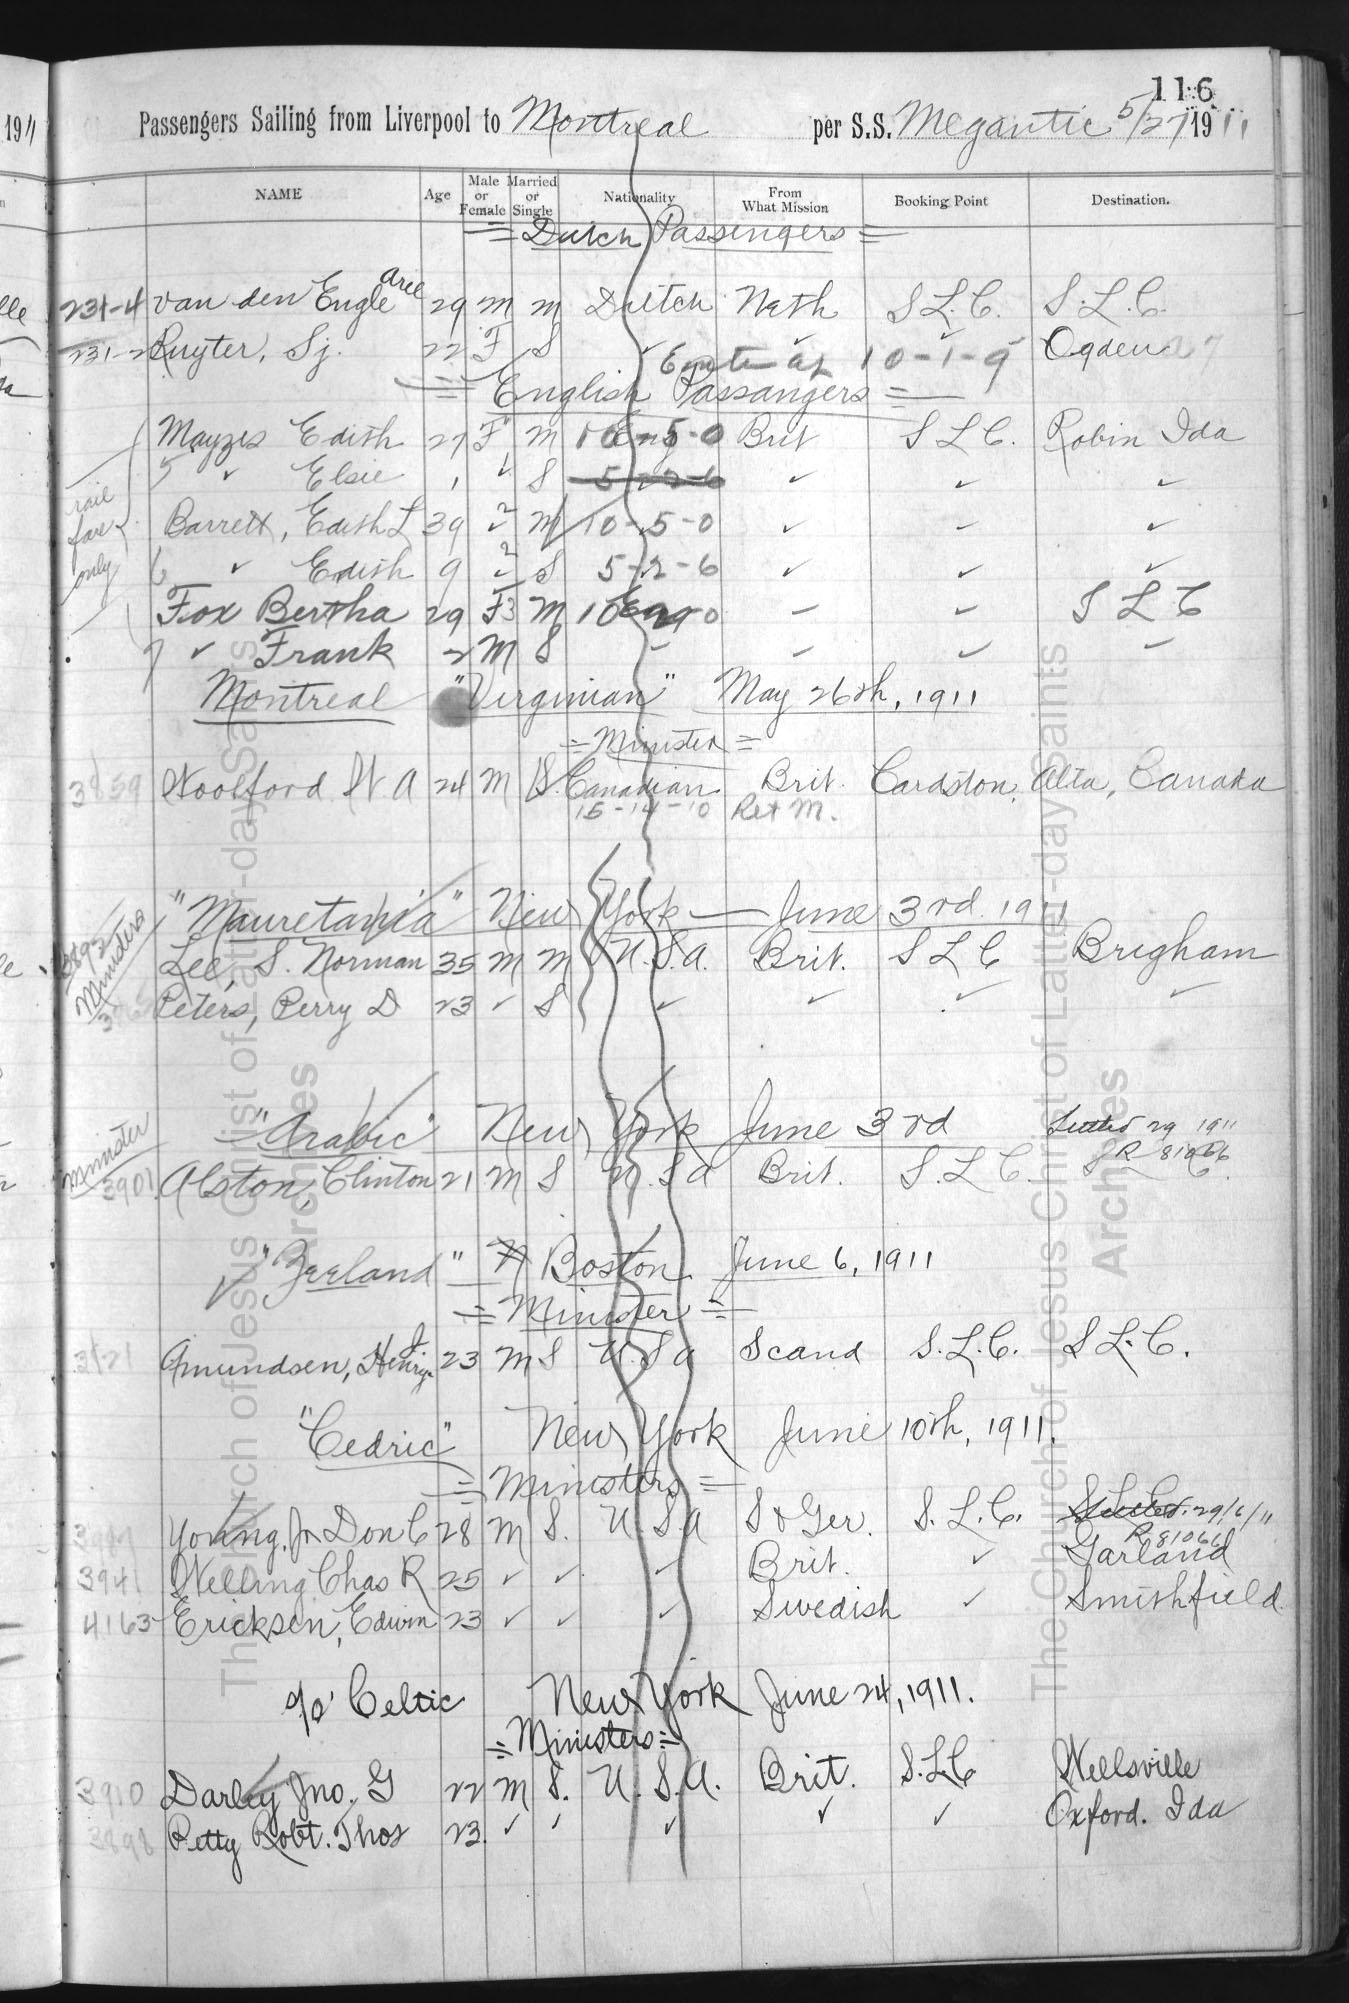 116
Passengers Sailing from Liverpool to Montreal per S.S. Megantic 5/27 1911
NAME Age Male or Female Married or Single Nationality From What Mission Booking Point Destination.
= Dutch Passengers =
231-4 van den Engle Arie 29 m m Dutch Neth S.L.C. S.L.C.
231-2 Ruyter, Sj. 22 F S ✓ ✓ ✓ Ogden
10-1-9
= English Passangers =
Mayzes Edith 27 F m Eng 10-5-0 Brit S L C. Robin Ida
5 ✓ Elsie 1 ✓ S 5-2-6 ✓ ✓ ✓
rail fare only
Barrett, Edith L 39 ✓ 2 M 10-5-0 ✓ ✓ ✓
6 ✓ Edith 9 ✓ 2 S 5-2-6 ✓ ✓ ✓
Fox Bertha 29 F 3 M Eng ✓ ✓ S L C
7 ✓ Frank 2 M S ✓ ✓ ✓ ✓
Montreal "Virginian" May 26th, 1911
= Minister =
3859 Woolford W A 24 M S. Canadian Brit. Cardston, Alta, Canada
15-14-10 Ret M.
"Mauretania" New York — June 3rd 1911
Ministers
3892 Lee, S. Norman 35 m m U.S.a. Brit. S L C Brigham
Peters, Perry D 23 ✓ S ✓ ✓ ✓ ✓
"Arabic" New York June 3rd 29 1911
R 81066
Minister
3901 Alston, Clinton 21 M S U.S a Brit. S.L.C.
✓ "Zeeland" Boston June 6, 1911
= Minister =
Amundsen, Henry J. 23 m S U S a Scand S.L.C. S L.C.
"Cedric" New York June 10th, 1911.
= Ministers =
Young, Jr Don C 28 M S. U S.a S & Ger. S. L. C. S L C
29/6/11
R 81066
3941 Welling Chas R 25 ✓ ✓ ✓ Brit. ✓ Garland
4163 Ericksen, Edwin 23 ✓ ✓ ✓ Swedish ✓ Smithfield
Celtic New York June 24, 1911.
= Ministers =
3910 Darley Jno. G 22 M S. U. S.A. Brit. S.L.C Wellsville
3898 Petty Robt. Thos 23. ✓ ✓ ✓ ✓ ✓ Oxford. Ida
The Church of Jesus Christ of Latter-day Saints
Archives
The Church of Jesus Christ of Latter-day Saints
Archives